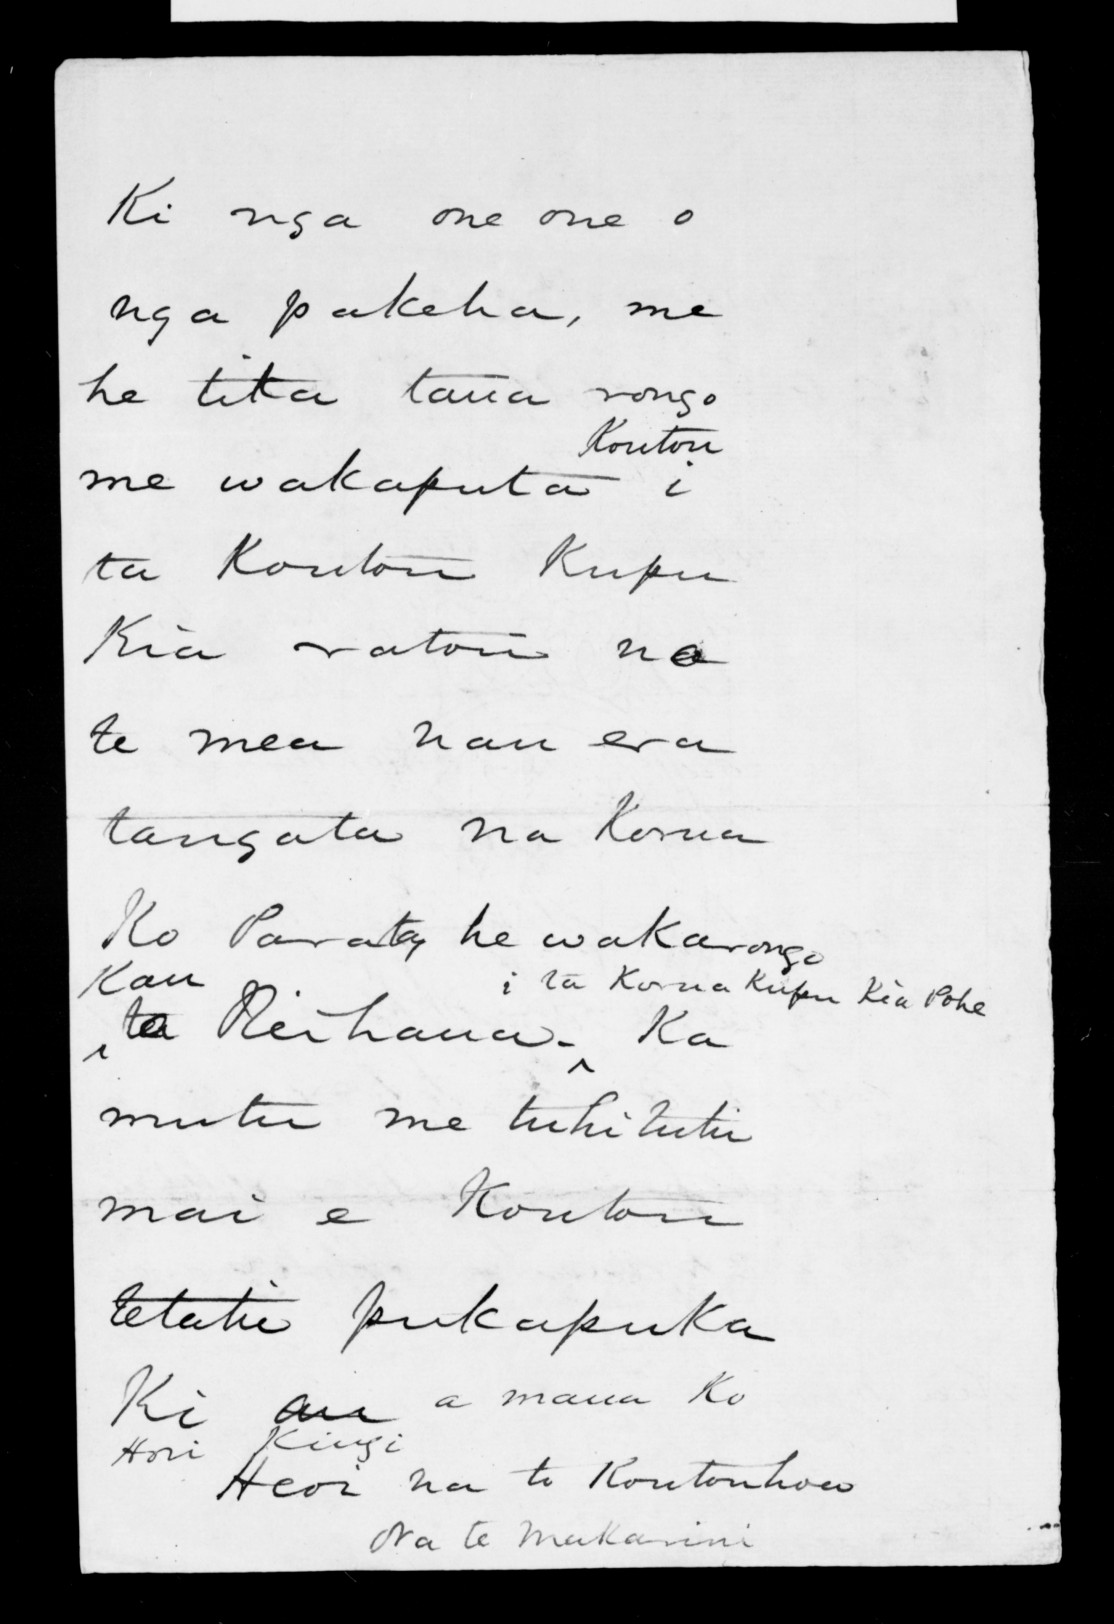 Ki nga one one o
nga pakeha, me
he tika taua rongo
Koutou
me wakaputa i
ta Koutou Kupu
Kia ratou no
te mea nau era
tangata na Korua
Ko Parata, he wakarongo
Kau i ta Korua Kupu Kia Pohe
te Reihana. Ka
mutu me tuhituhi
mai e Koutou
tetahi pukapuka
Ki au a maua Ko
Hori Kingi
Heoi na to Koutou hoa
Na te Makarini